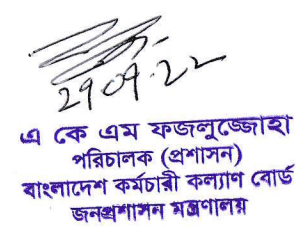 29.09.22
এ কে এম ফজলুজ্জোহা
পরিচালক (প্রশাসন)
বাংলাদেশ কর্মচারী কল্যাণ বোর্ড
জনপ্রশাসন মন্ত্রণালয়